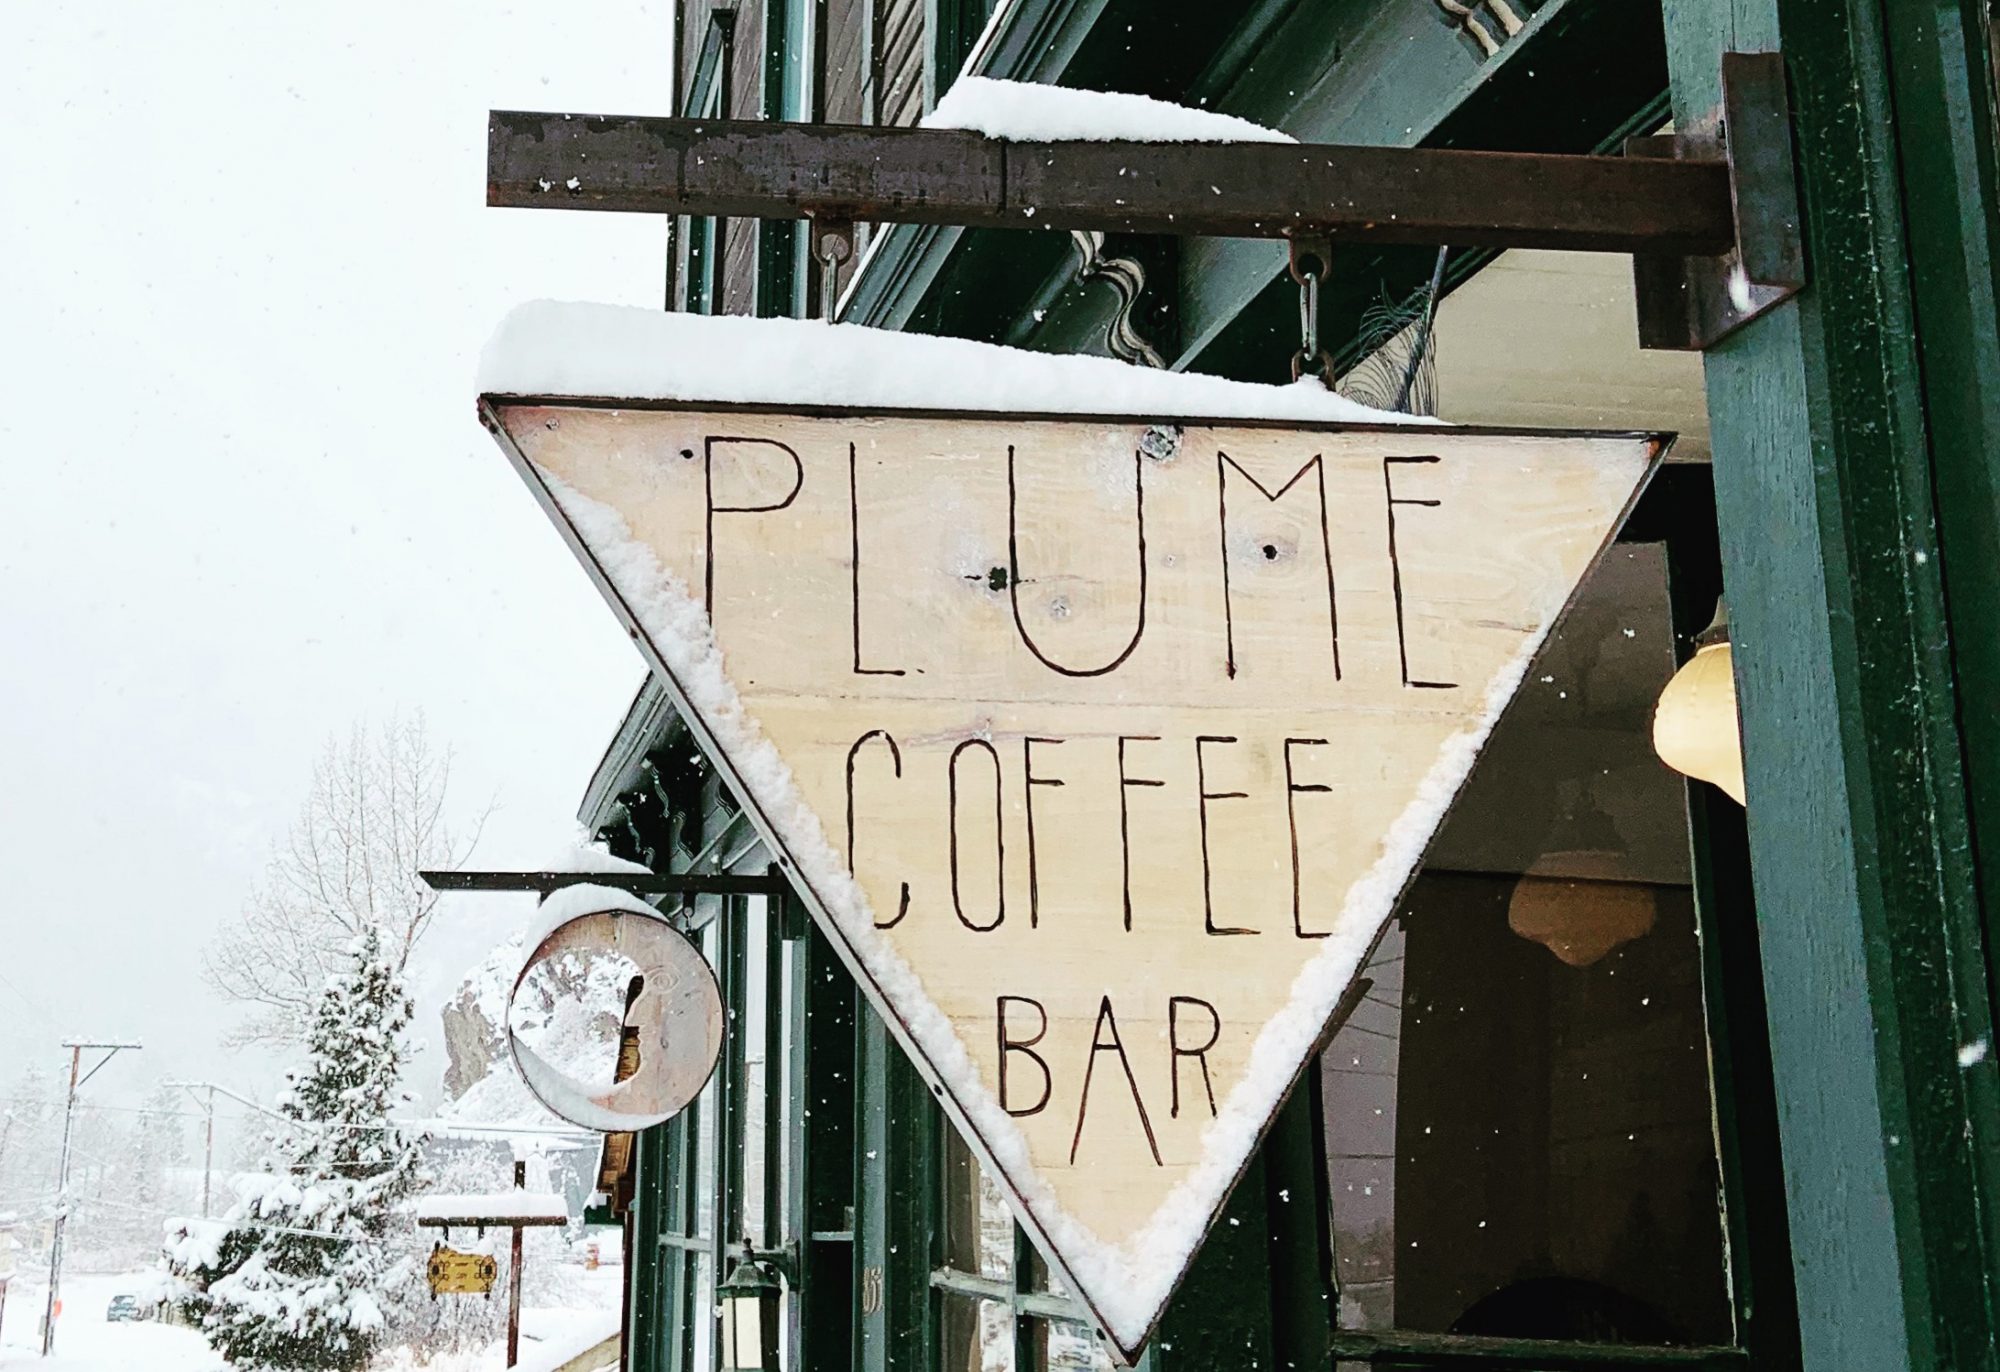 PLUME
COFFEE
BAR